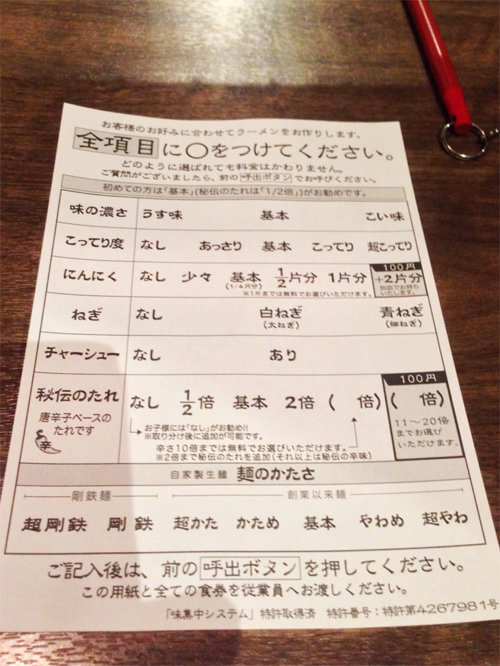 お客様のお好みに合わせてラーメンをお作りします。
全項目に〇をつけてください。
どのように選ばれても料金はかわりません。
ご質問がございましたら、前の呼出ボタンでお呼びください。
初めての方は「基本」(秘伝のたれは「1/2倍」)がお勧めです。
味の濃さ うす味 基本 こい味
こってり度 なし あっさり 基本 こってり 超こってり
にんにく なし 少々 基本 1/2片分 1片分 +2片分
(1/4片分)
100円
※1片までは無料でお選びいただけます。
ねぎ なし 白ねぎ 青ねぎ
(太ねぎ) (細ねぎ)
チャーシュー なし あり
秘伝のたれ なし 1/2倍 基本 2倍 ( 倍) ( 倍)
唐辛子ベースの
たれです
100円
11～20倍
までお選び
いただけます。
お子様には「なし」がお勧め!!
※取り分け後に追加が可能です。
辛さ10倍までは無料でお選びいただけます。
※2倍まで秘伝のたれを追加(それ以上は秘伝の辛味)
自家製生麺 麺のかたさ
剛鉄麺 創業以来麺
超剛鉄 剛鉄 超かた かため 基本 やわめ 超やわ
ご記入後は、前の呼出ボタンを押してください。
この用紙と全ての食券を従業員へお渡しください。
「味集中システム」特許取得済 特許番号:特許第4267981号